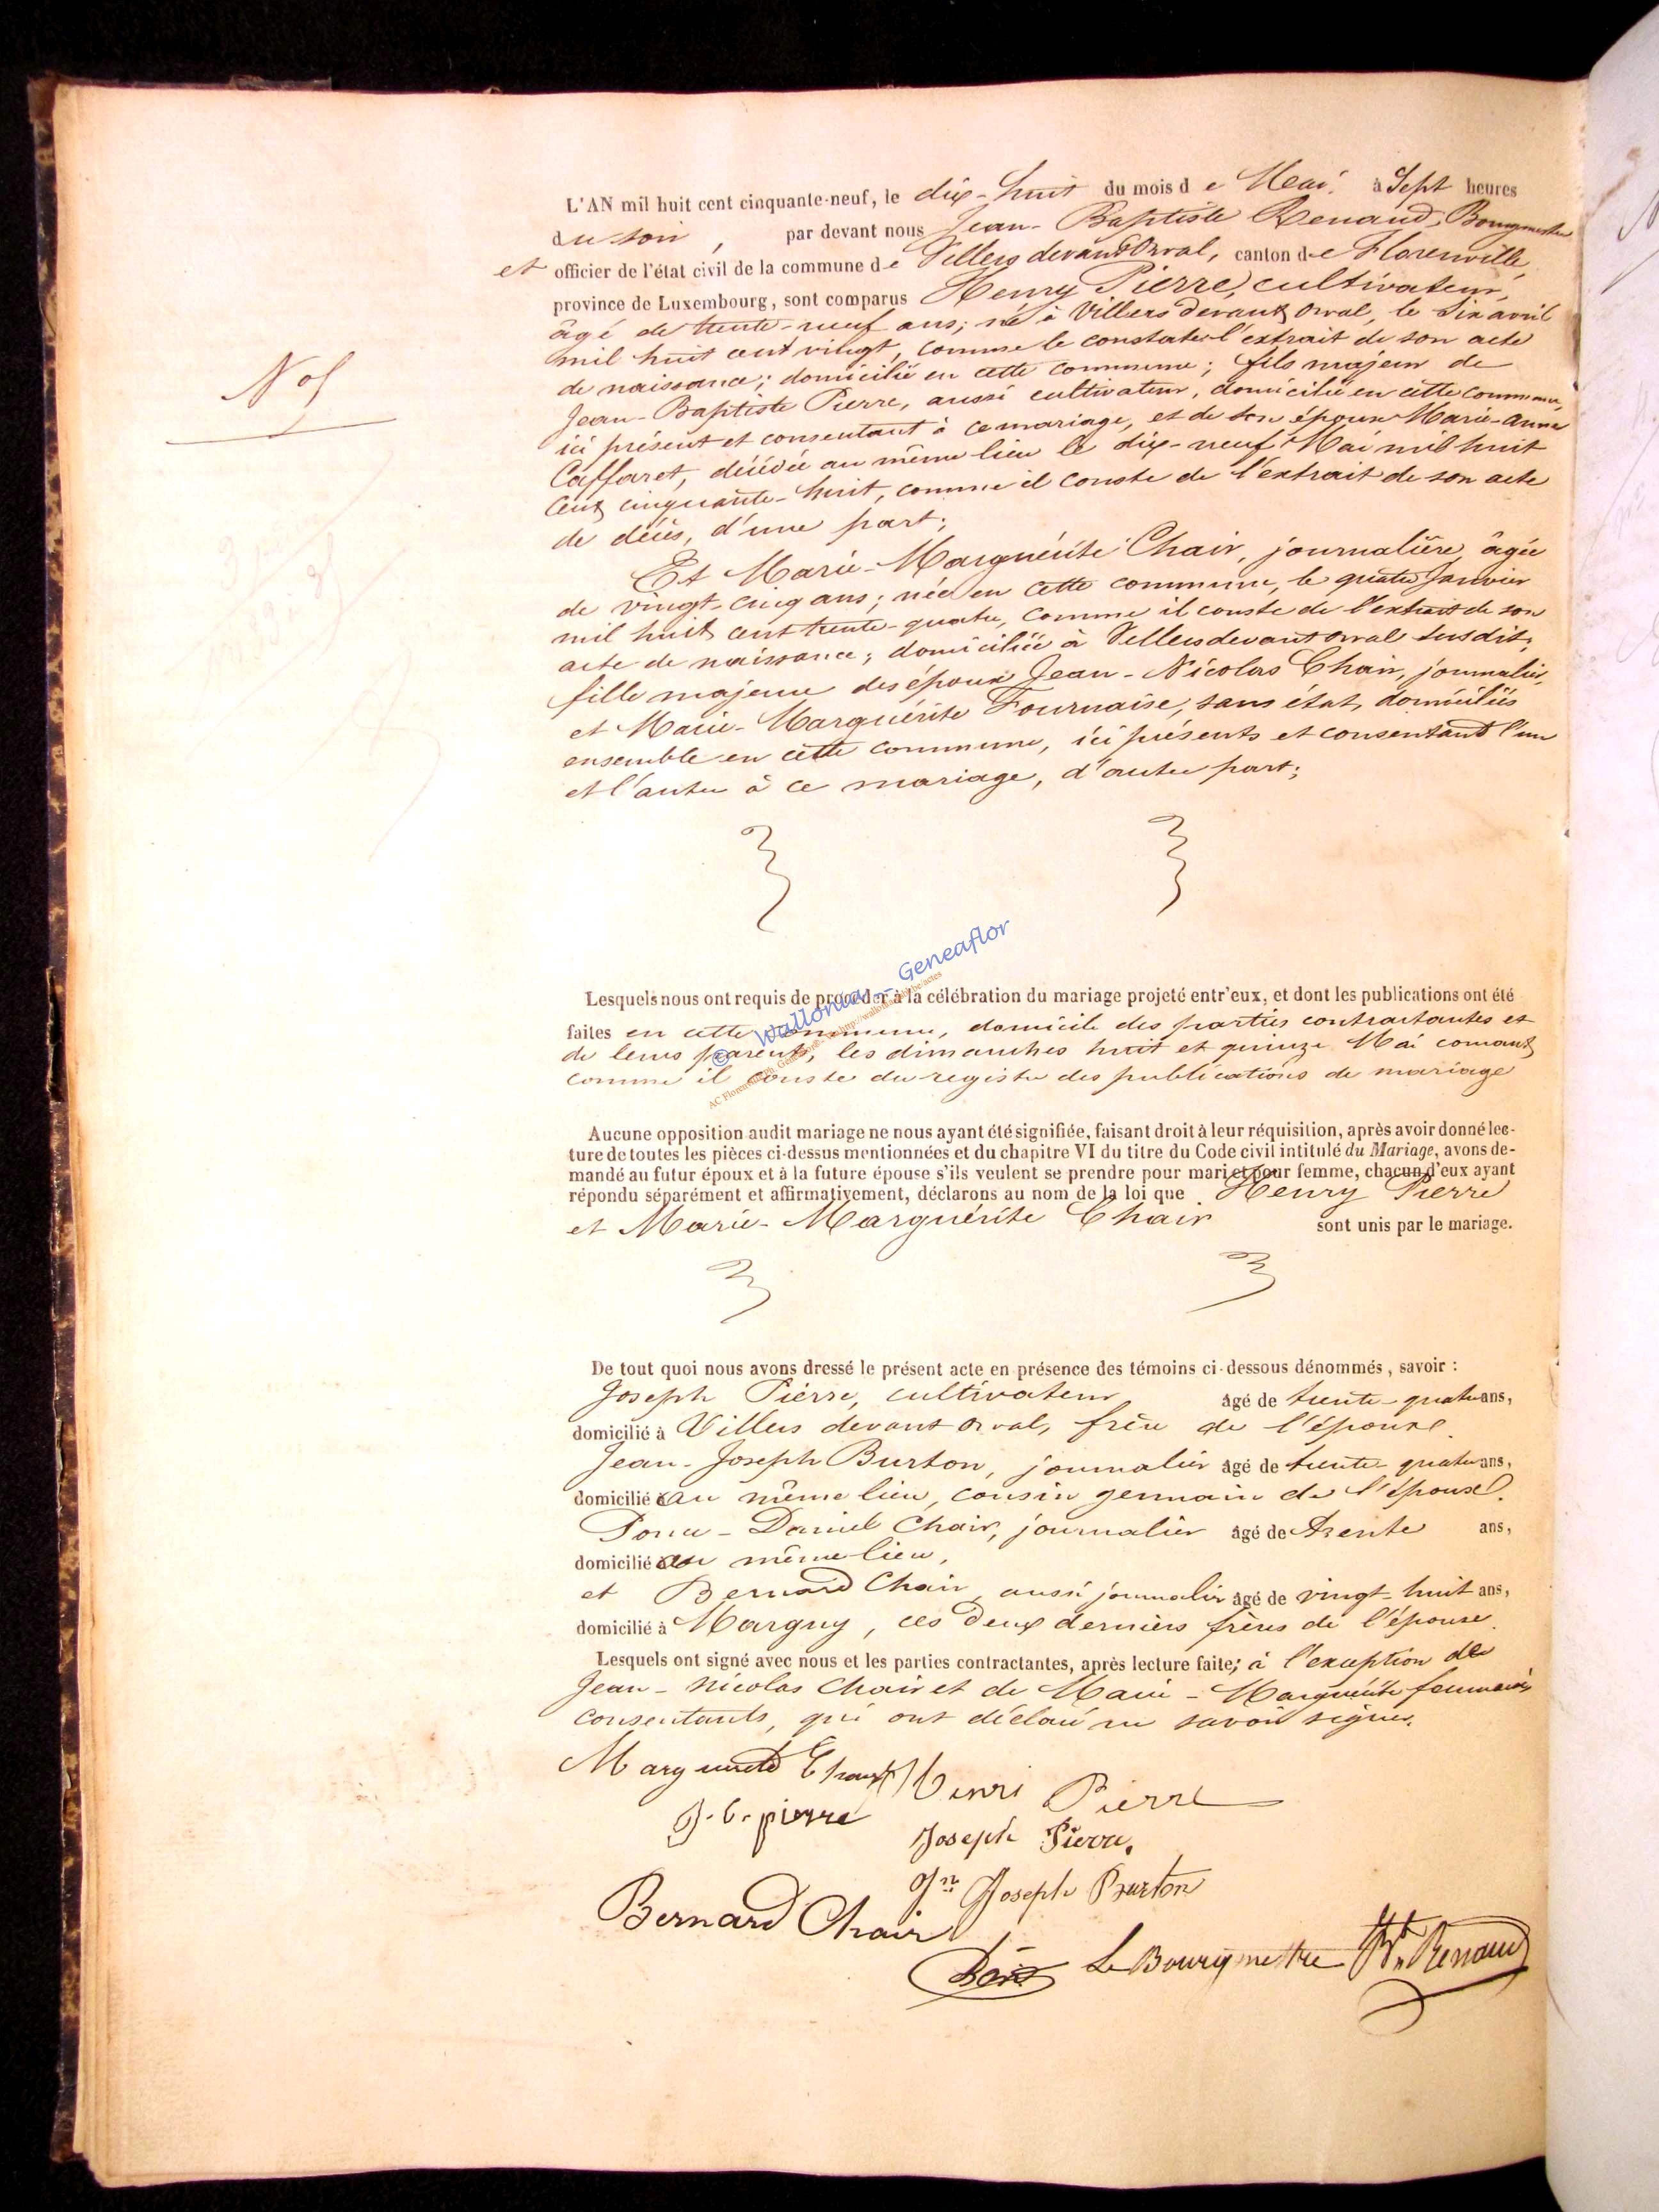 L'AN mil huit cent cinquante-neuf, le dix-huit du mois de Mai à Sept heures
du soir, par devant nous Jean-Baptiste Renaud, Bourgmestre
et officier de l'état civil de la commune de Villers devant Orval, canton de Florenville,
province de Luxembourg, sont comparus Henry Pierre, cultivateur,
âgé de trente-neuf ans; né à Villers devant Orval, le six avril
mil huit cent vingt, comme le constate l'extrait de son acte
de naissance; domicilié en cette commune; fils majeur de
Jean-Baptiste Pierre, aussi cultivateur, domicilié en cette commune,
ici présent et consentant à ce mariage, et de son épouse Marie-Anne
Caffaret, décédée au même lieu le dix-neuf Mai mil huit
cent cinquante-huit, comme il conste de l'extrait de son acte
de décès, d'une part;
Et Marie-Marguérite Chair, journalière, âgée
de vingt-cinq ans; née en cette commune, le quatre Janvier
mil huit cent trente-quatre, comme il conste de l'extrait de son
acte de naissance; domiciliée à Villers devant Orval susdit;
fille majeure des époux Jean-Nicolas Chair, journalier,
et Marie-Marguérite Fournaise, sans état, domiciliés
ensemble en cette commune, ici présents et consentant l'un
et l'autre à ce mariage, d'autre part;
N° 5
© Wallonia - Geneaflor
Lesquels nous ont requis de procéder à la célébration du mariage projeté entr'eux, et dont les publications ont été
faites en cette commune, domicile des parties contractantes et
de leurs parents, les dimanches huit et quinze Mai courant
comme il conste du registre des publications de mariage
Aucune opposition audit mariage ne nous ayant été signifiée, faisant droit à leur réquisition, après avoir donné lec-
ture de toutes les pièces ci-dessus mentionnées et du chapitre VI du titre du Code civil intitulé du Mariage, avons de-
mandé au futur époux et à la future épouse s'ils veulent se prendre pour mari et pour femme, chacun d'eux ayant
répondu séparément et affirmativement, déclarons au nom de la loi que Henry Pierre
et Marie-Marguérite Chair sont unis par le mariage.
De tout quoi nous avons dressé le présent acte en présence des témoins ci-dessous dénommés, savoir :
Joseph Pierre, cultivateur âgé de trente-quatre ans,
domicilié à Villers devant Orval, frère de l'époux.
Jean-Joseph Burton, journalier âgé de trente-quatre ans,
domicilié au même lieu, cousin germain de l'épouse.
Daniel Chair, journalier âgé de trente ans,
domicilié au même lieu,
et Bernard Chair, aussi journalier âgé de vingt-huit ans,
domicilié à Margny, ces deux derniers frères de l'épouse.
Lesquels ont signé avec nous et les parties contractantes, après lecture faite; à l'exception de
Jean-Nicolas Chair et de Marie-Marguérite fournaise
consentants, qui ont déclaré ne savoir signer.
Marguerite Chair Henri Pierre
J. b. pierre
Joseph Pierre.
Jn Joseph Burton
Bernard Chair
Le Bourgmestre Renaud